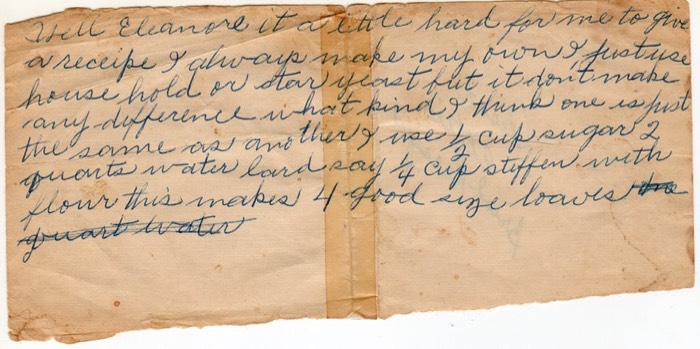 Well Eleanore it a little hard for me to give
a receipe I always make my own I just use
house hold or star yeast but it dont make
any difference what kind I think one is just
the same as another I use ½ cup sugar 2
quarts water lard say ¼ cup stiffen with
flour this makes 4 good size loaves this
quart water